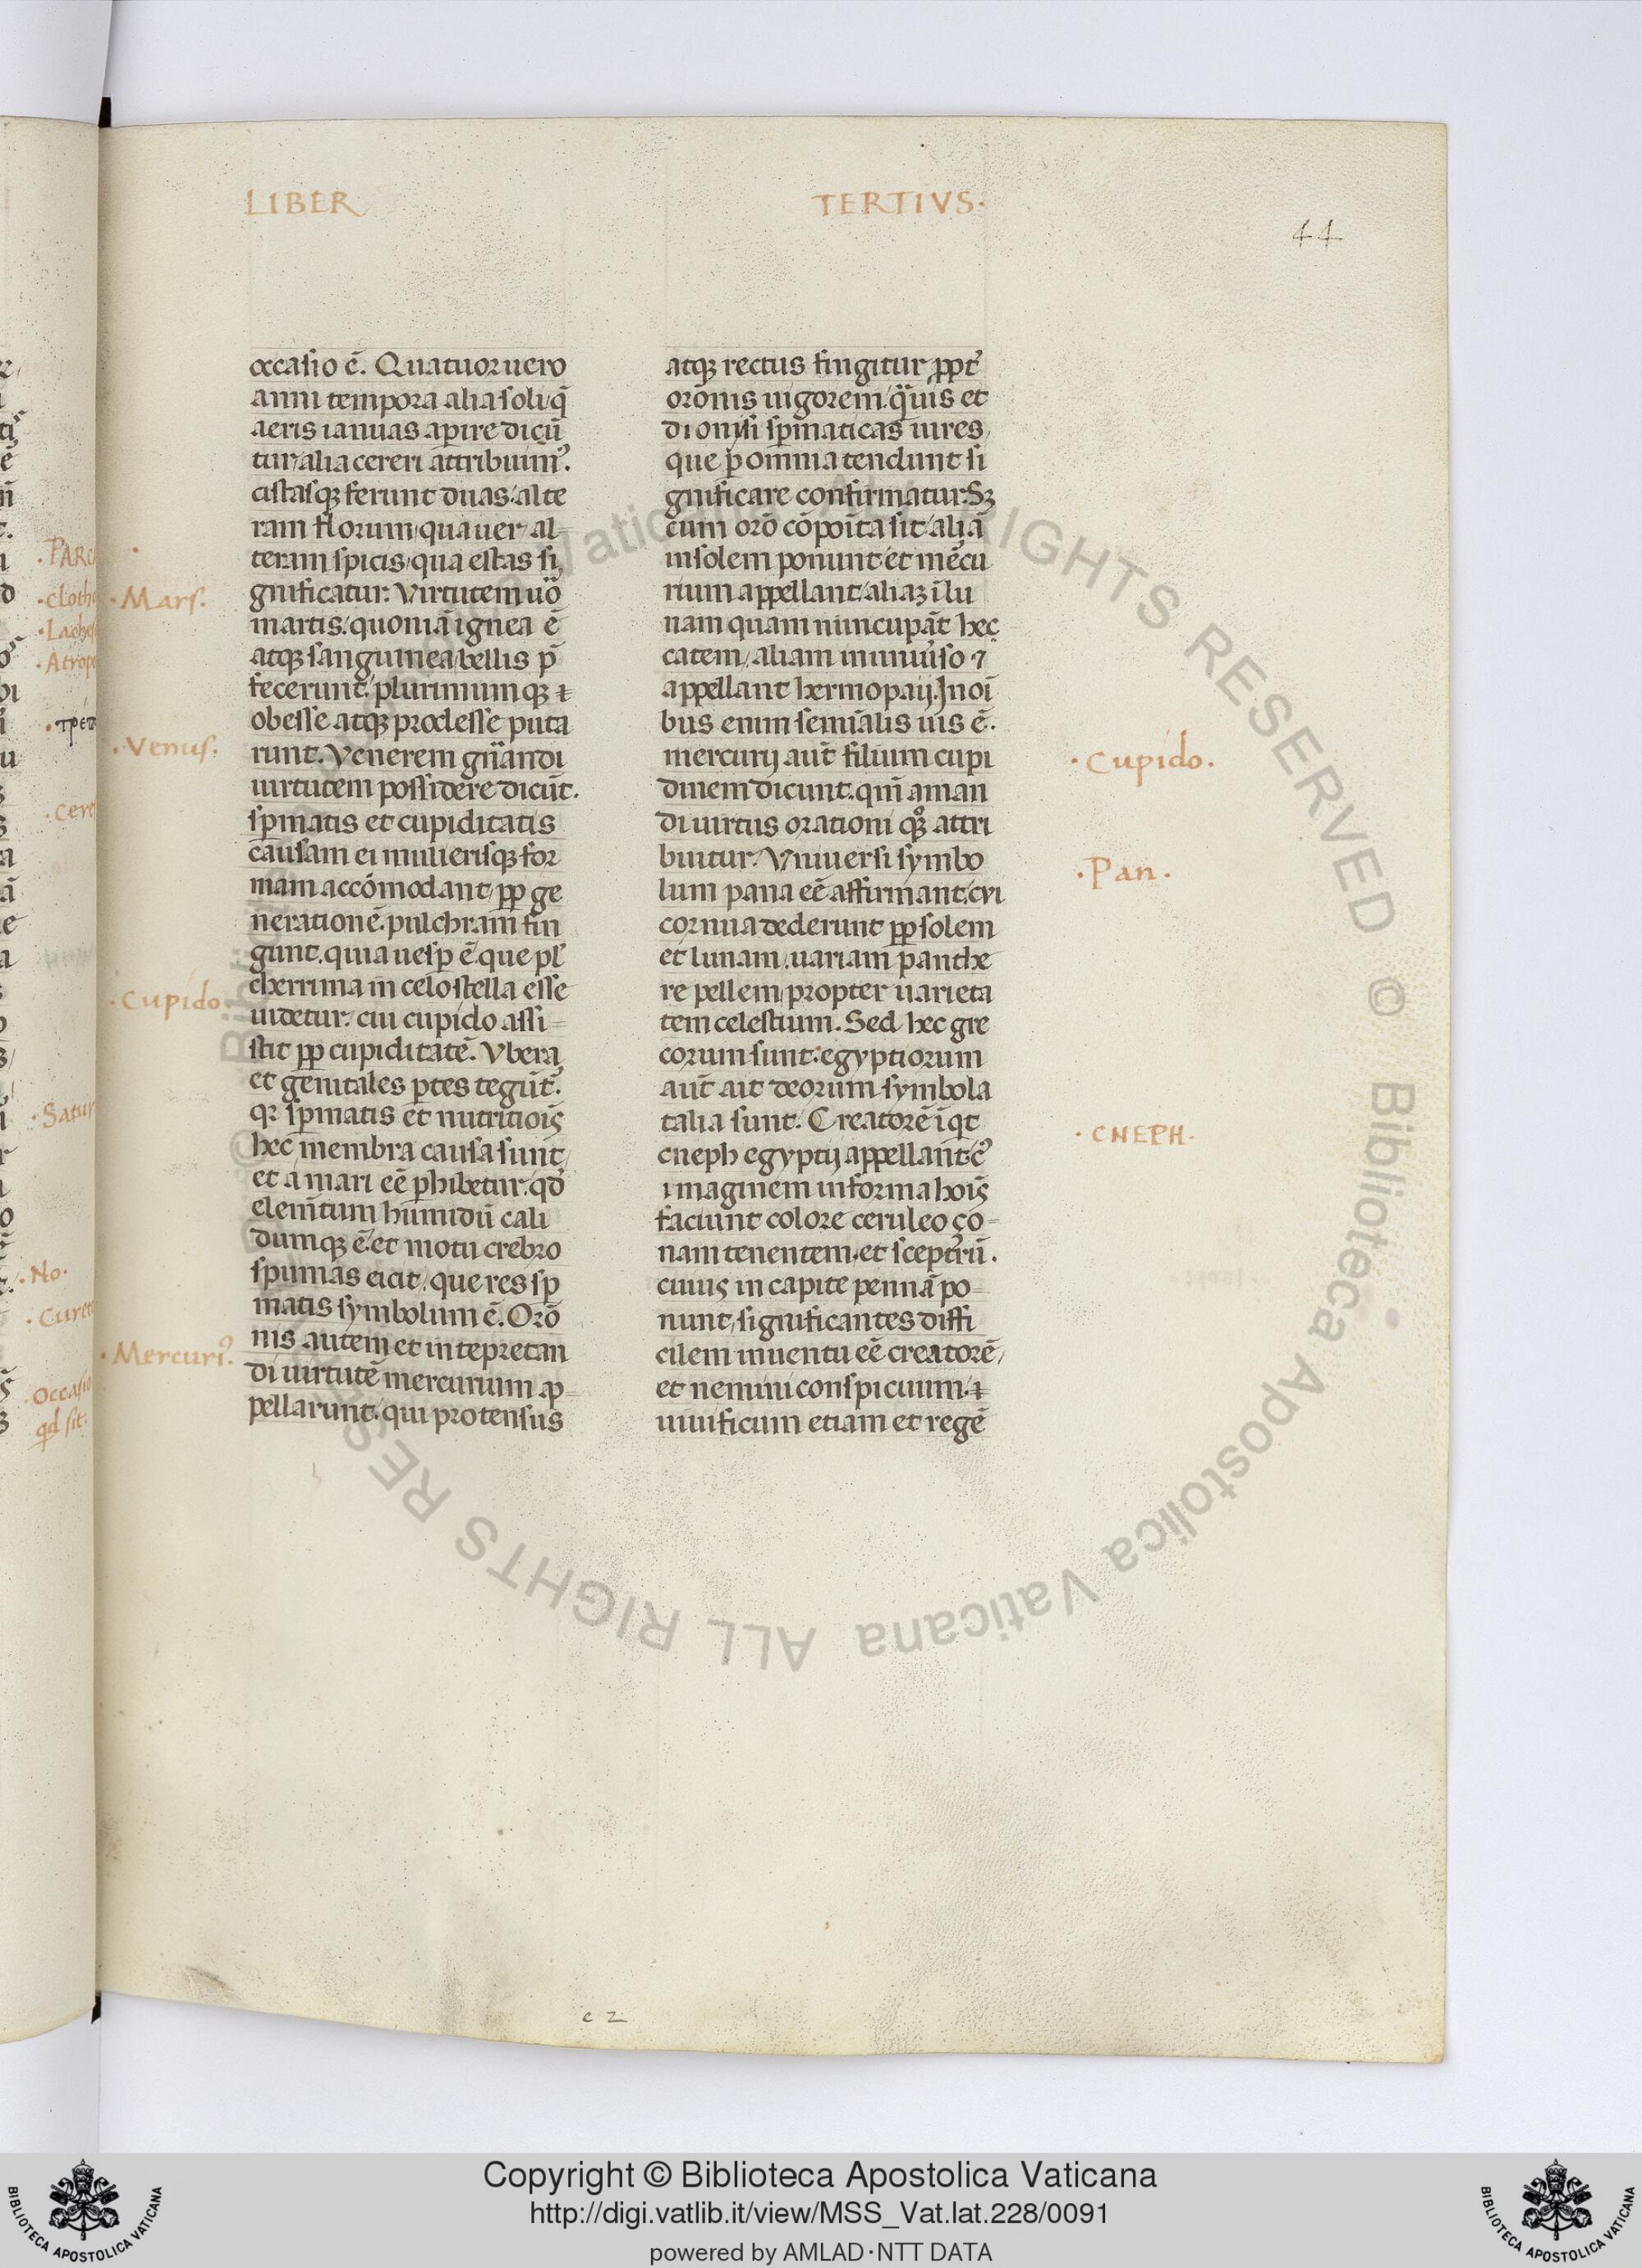 LIBER TERTIVS.
44
occasio ē. Quatuor uero
anni tempora alia soli q̄
aeris ianuas aperire dicū
tur alia cereri attribuim᷒.
cistasqꝫ ferunt duas: alte
ram florum qua uer al-
teram spicis qua estas si
gnificatur. Virtutem uō
martis quoniā ignea ē
atqꝫ sanguinea bellis p̄
fecerunt. plurimumqꝫ ⁊
obesse atqꝫ prodesse puta
runt. Venerem gn̄andi
uirtutem possidere dicūt.
sp̄matis et cupiditatis
causam ei mulierisqꝫ for
mam accōmodant, pp̄ ge
nerationē. pulchram fin
gunt. quia uesp̄ ē. que pl᷒
cherrima in celo stella esse
uidetur. cui cupido assi-
stit pp̄ cupiditatē. Vbera
et genitales ptes tegūt.
qꝛ sp̄matis et nutritiōis
hec membra causa sunt
et a mari eē phibetur. qd̓
elem̄tum humidū cali
dumqꝫ ē. et motu crebro
spumas eicit. que res sp̄
matis symbolum ē. Orō
nis autem et intepretan
di uirtutē mercurium ap-
pellarunt. qui protensus
atqꝫ rectus fingitur ꝓpt᷒
orōnis uigorem. q̄uis et
dionysi sp̄maticas uires
que p omnia tendunt si
gnificare confirmatur. Sꝫ
cum orō cōpoīta sit. aliā
in solem ponunt et mēcu
rium appellant. aliaꝫ ī lu
nam quam nuncupāt hec
catem, aliam in uniūso ⁊
appellant hermopaɳ. In oī
bus enim semīalis uis ē.
mercurij aūt filium cupi
dinem dicunt. qm̄ aman
di uirtus orationi qꝫ attri
buitur. Vniuersi symbo
lum pana eē affirmant. cvi
cornua dederunt pp̄ solem
et lunam. uariam panthe
re pellem propter uarieta
tem celestium. Sed hec gre
corum sunt. egyptiorum
aūt ait deorum symbola
talia sunt. Creatorē īqt
cneph egyptij appellant. c᷒
imaginem in forma hoīs
faciunt colore ceruleo ço-
nam tenentem. et sceptrū.
cuius in capite pennā po-
nunt, significantes diffi
cilem inuentu eē creatorē,
et nemini conspicuum. ⁊
uiuificum etiam et regē
·Mars.
·Venus.
·Cupido
·Mercuri᷒.
·Cupido.
·Pan.
·CNEPH.
·PARC
·Cloth
·Lach
·Atrop
·Cere
·Satur
·No.
·Curet
·Occasio
qd sit:
c 2
© Biblioteca Apostolica Vaticana ALL RIGHTS RESERVED
Copyright © Biblioteca Apostolica Vaticana
http://digi.vatlib.it/view/MSS_Vat.lat.228/0091
powered by AMLAD·NTT DATA
BIBLIOTECA APOSTOLICA VATICANA
BIBLIOTECA APOSTOLICA VATICANA